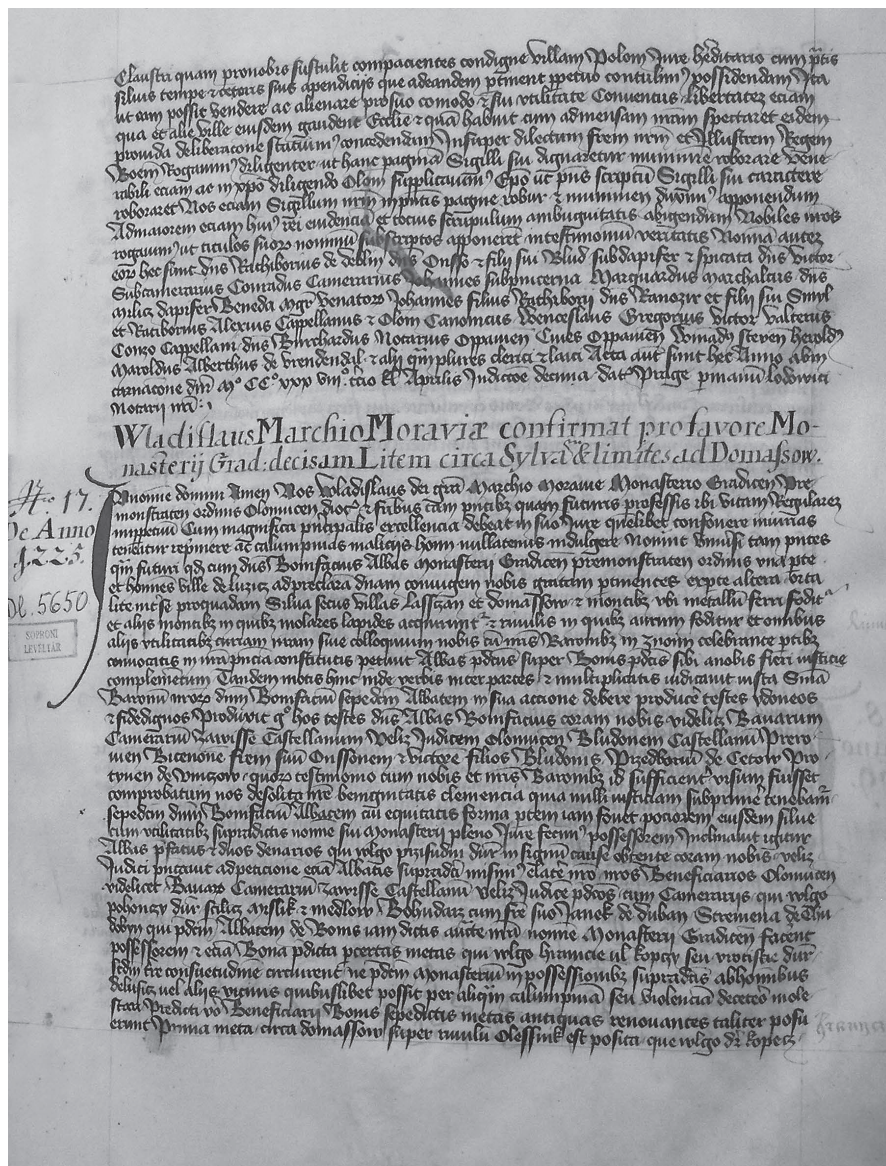 Claustri quam pronobis sustulit compacientes condigne villam Polom Jure hereditario cum pratis
siluis tempe & ceteris suis apendicijs que adeandem ptinent ppetuo contulim9 possidendam Ita
ut eam possit vendere ac alienare prosuo comodo & sui utilitate Conuentus libertatez eciam
qua et alie ville eiusdem gaudent Ecclie & quam habuit cum admensam nram spectaret eidem
prouida deliberacone statuim9 concedendam Insuper dilectum frem nrm et Illustrem Regem
Boem Rogauim9 diligenter ut hanc paginam Sigilli sui dignaretur munimine roborare Vene
rabili eciam ac in xpo diligendo Olom supplicauim9 Epo ut pns scriptum Sigilli sui caractere
roboraret Nos eciam Sigillum nrm inpntis pagine robur & munimen duxim9 apponendum
Admaiorem eciam hui9 rei euidenciam et tocius scrupulum ambiguitatis abigendum Nobiles nros
rogauim9 ut titulos suorum nominum subscriptos apponerent intestimonium veritatis Nomina autez
eorum hec sunt dns Rathiborius de deblin dns Onsso & filij sui Blud subdapifer & spitata dns victor
Subcamerarius Conradus Camerarius Johannes subpincerna Marquardus Marchalcus dns
Milicz dapifer Beneda Mgr Venatorum Johannes filius Rathiborij dns Ranozir et filij sui Smil
et Ratiborius Alexius Cappellanus & Olom Canonicus Wenceslaus Gregorius victor valterus
Conzo Cappellani dns Burchardus Notarius Oppauien Ciues Oppauien steven herold9
Maroldus Alberthus de vrendendal & alij qm plures clerici & laici Acta aut sunt hec Anno abin
carnacone dni Mo CCo xxx viijo tcio kl Aprilis Indiccoe decima dat Prage p manum Lodowici
Notarij nri
Wladislaus Marchio Moraviæ confirmat pro favore Mo-
nasterij Grad: decisam Litem circa Sylvã & limites ad Domassow.
Nro 17.
De Anno
1225.
Dl. 5650
SOPRONI
LEVÉLTÁR
Innomine domini Amen Nos Wladislaus dei gra Marchio Morauie Monasterio Gradicen Pre
monstraten ordinis Olomucen dioc & fribus tam pntibz quam futuris professis ibi vitam Regularez
inppetuum Cum magnifica principalis excellencia debeat in suo Jure quelibet confouere iniurias
tenentur reprimere ac calumpnias malicijs homin nullatenus indulgere Nouint vniusi tam pntes
qm futuri qd cum dns Bonifacius Abbas monasterij Gradicen premonstraten ordinis vna pte
et homines ville de luzicz ad preclaram dnam coniugem nobis gratam ptinentes expte altera orta
lite inter se proquadam Silua secus villas Lassczan et domassow & montibz vbi metallum ferri foditur
et alijs montibz in quibz molares lapides acquirunt & riuulis in quibz aurum foditur et omnibus
alijs vtilitatibz curiam nram siue colloquium nobis cum nris Baronibz in znoim celebrante ptibz
conuocatis in nra pncia constitutis petiuit Abbas pdcus super Bonis pdcis sibi anobis fieri iusticie
complementum Tandem motis hinc inde verbis inter partes & multiplicitis iudicauit iusta Sniam
Baronum nrorum dnm Bonifacium sepedcm Abbatem in sua accione debere producere testes ydoneos
& fidedignos Produxit go hos testes dns Abbas Bonifacius coram nobis videlicz Bauarum
Camerarium Zawisse Castellanum Veliz Judicem Olomucen Bludonem Castellanum Prero
uien Bicenone frem suum Onssonem & victore filios Bludonis Przedborium de Cetow Pro
tyuen de vniczow quorum testimonio cum nobis et nris Baronibz id sufficient visum fuisset
comprobatum nos desolita nre benignitatis clemencia quia nulli iusticiam subprimere tenebamur
sepedcm dnm Bonifacium Abbatem cum equitatis forma ptem iam fouet pociorem eiusdem silue
cum vtilitatibz supradictis nomine sui Monasterij pleno Jure fecim9 possessorem Inclinauit igitur
Abbas pfatus & duos denarios qui wlgo przisudni dnr in signum cause obtente coram nobis veliz
Judici pntauit adpeticione eciam Abbatis supradci misim9 elate nro nros Beneficiarios Olomucen
videlicet Bauarum Camerarium Zawisse Castellanum veliz Judice pdcos cum Camerarijs qui wlgo
pohonczy dnr scilicz Myslik & medlow Bohudarz cum fre suo Janek de duban Stremena de Chu
dobyn qui pdcm Abbatem de Bonis iam dictis aucte nra nomine Monasterij Gradicen facerent
possessorem & eciam Bona pdicta pcertas metas qui wlgo hranicie vl kopczy seu vrocistie dnr
scdm tre consuetudinem circuirent ne pdcm Monasterium in possessionibz supradcis abhominibus
deluzicz vel alijs vicinis quibuslibet possit per aliqm calumpniam seu violenciam decetero mole
stari Predicti vo Beneficiarij Bonis sepedictis metas antiquas renouantes taliter posu
erunt Prima meta circa domassow super riuulum Olessnik est posita que wlgo dr kopecz